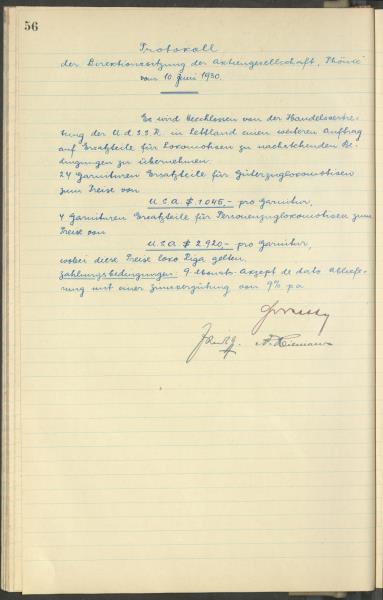 56
Protokoll
der Direktionssitzung der Aktiengesellschaft "Phönix"
vom 10 Juni 1930.
Es wird beschlossen von der Handelsvertre-
tung der U.d.S.S.R. in Lettland einen weiteren Auftrag
auf Ersatzteile für Lokomotiven zu nachstehenden Be-
dingungen zu übernehmen:
24 Garnituren Ersatzteile für Güterzuglokomotiven
zum Preise von
U.S.A. $ 1045,- pro Garnitur,
4 Garnituren Ersatzteile für Personenzuglokomotiven zum
Preise von
U.S.A. $ 2920,- pro Garnitur,
wobei diese Preise loko Riga gelten.
Zahlungsbedingungen: 9 Monats-Akzept de dato Abliefe-
rung mit einer Zinsvergütung von 9% p.a.